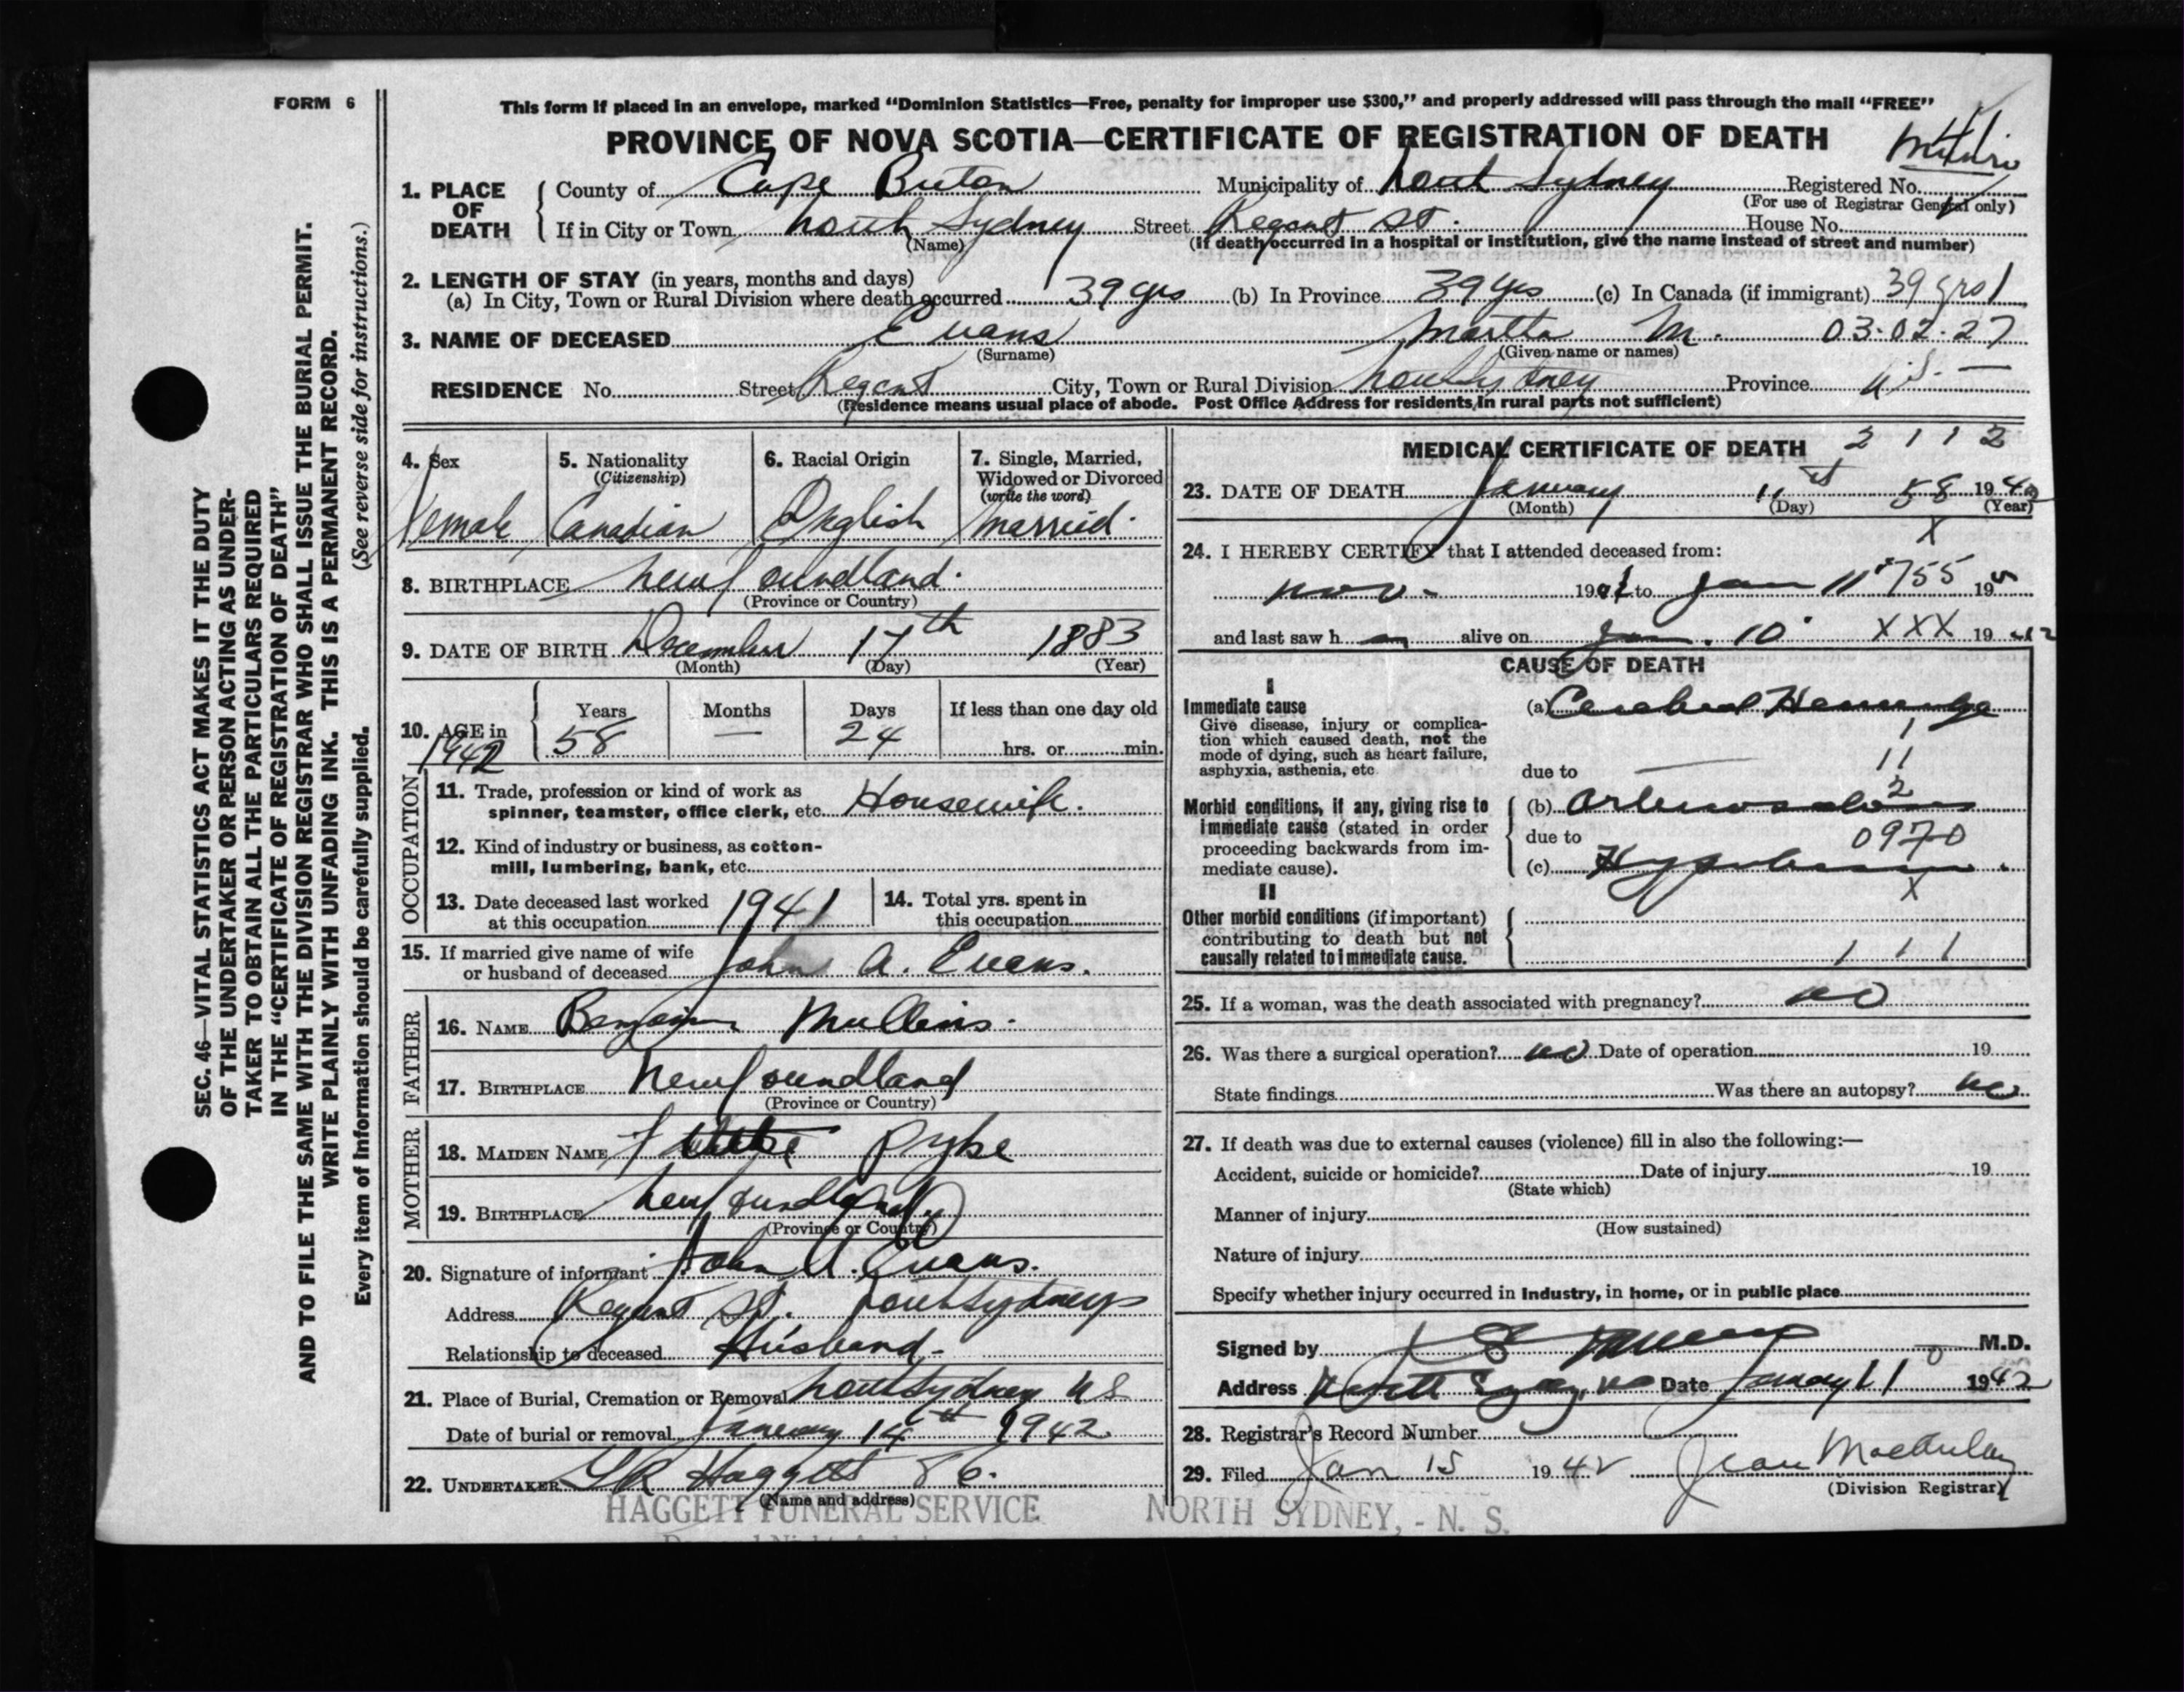 FORM 6
This form if placed in an envelope, marked "Dominion Statistics—Free, penalty for improper use $300," and properly addressed will pass through the mail "FREE"
PROVINCE OF NOVA SCOTIA—CERTIFICATE OF REGISTRATION OF DEATH
1. PLACE OF DEATH
County of Cape Breton Municipality of North Sydney Registered No.
(For use of Registrar General only)
If in City or Town North Sydney Street Regent St. House No.
(Name) (If death occurred in a hospital or institution, give the name instead of street and number)
2. LENGTH OF STAY (in years, months and days)
(a) In City, Town or Rural Division where death occurred 39 yrs (b) In Province 39 yrs (c) In Canada (if immigrant) 39 yrs 1
3. NAME OF DECEASED Evans Martha M. 03.02.27
(Surname) (Given name or names)
RESIDENCE No. Street Regent City, Town or Rural Division North Sydney Province N.S. —
(Residence means usual place of abode. Post Office Address for residents in rural parts not sufficient)
4. Sex
Female
5. Nationality
(Citizenship)
Canadian
6. Racial Origin
English
7. Single, Married,
Widowed or Divorced
(write the word)
Married.
8. BIRTHPLACE Newfoundland.
(Province or Country)
9. DATE OF BIRTH December 17th 1883
(Month) (Day) (Year)
10. AGE in
1942
Years Months Days If less than one day old
58 — 24 hrs. or min.
OCCUPATION
11. Trade, profession or kind of work as
spinner, teamster, office clerk, etc. Housewife.
12. Kind of industry or business, as cotton-
mill, lumbering, bank, etc.
13. Date deceased last worked
at this occupation 1941
14. Total yrs. spent in
this occupation
15. If married give name of wife
or husband of deceased John A. Evans.
FATHER
16. NAME Benjamin Mullins.
17. BIRTHPLACE Newfoundland
(Province or Country)
MOTHER
18. MAIDEN NAME Pyke
19. BIRTHPLACE Newfoundland
(Province or Country)
20. Signature of informant John A. Evans.
Address Regent St. North Sydney
Relationship to deceased Husband.
21. Place of Burial, Cremation or Removal North Sydney N S
Date of burial or removal January 14th 1942
22. UNDERTAKER Haggett
(Name and address)
HAGGETT FUNERAL SERVICE NORTH SYDNEY, - N. S.
MEDICAL CERTIFICATE OF DEATH 2 1 1 2
23. DATE OF DEATH January 11 58 1942
(Month) (Day) (Year)
X
24. I HEREBY CERTIFY that I attended deceased from:
Nov. 1941 to Jan 11 755 19
and last saw h alive on Jan. 10 XXX 19 42
CAUSE OF DEATH
I
Immediate cause
Give disease, injury or complica-
tion which caused death, not the
mode of dying, such as heart failure,
asphyxia, asthenia, etc
(a) Cerebral Hemorrhage
1
due to 11
Morbid conditions, if any, giving rise to
immediate cause (stated in order
proceeding backwards from im-
mediate cause).
2
(b) Arteriosclerosis
due to 0970
(c) Hypertension
X
II
Other morbid conditions (if important)
contributing to death but not
causally related to immediate cause.
1 1 1
25. If a woman, was the death associated with pregnancy? no
26. Was there a surgical operation? no Date of operation 19
State findings Was there an autopsy? no
27. If death was due to external causes (violence) fill in also the following:—
Accident, suicide or homicide? Date of injury 19
(State which)
Manner of injury
(How sustained)
Nature of injury
Specify whether injury occurred in Industry, in home, or in public place
Signed by M.D.
Address North Sydney, NS Date January 11 1942
28. Registrar's Record Number
29. Filed Jan 15 1942 Jean MacAulay
(Division Registrar)
SEC. 46—VITAL STATISTICS ACT MAKES IT THE DUTY
OF THE UNDERTAKER OR PERSON ACTING AS UNDER-
TAKER TO OBTAIN ALL THE PARTICULARS REQUIRED
IN THE "CERTIFICATE OF REGISTRATION OF DEATH"
AND TO FILE THE SAME WITH THE DIVISION REGISTRAR WHO SHALL ISSUE THE BURIAL PERMIT.
WRITE PLAINLY WITH UNFADING INK. THIS IS A PERMANENT RECORD.
Every item of information should be carefully supplied. (See reverse side for instructions.)